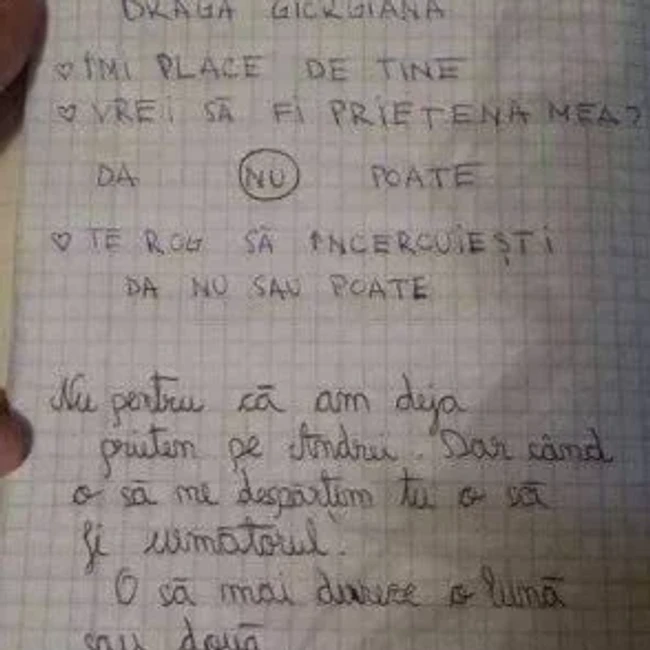 DRAGĂ GIORGIANA
♡ ÎMI PLACE DE TINE
♡ VREI SĂ FI PRIETENA MEA?
DA NU POATE
♡ TE ROG SĂ ÎNCERCUIEȘTI
DA NU SAU POATE
Nu pentru că am deja
prieten pe Andrei. Dar când
o să ne despărțim tu o să
fi următorul.
O să mai dureze o lună
sau două